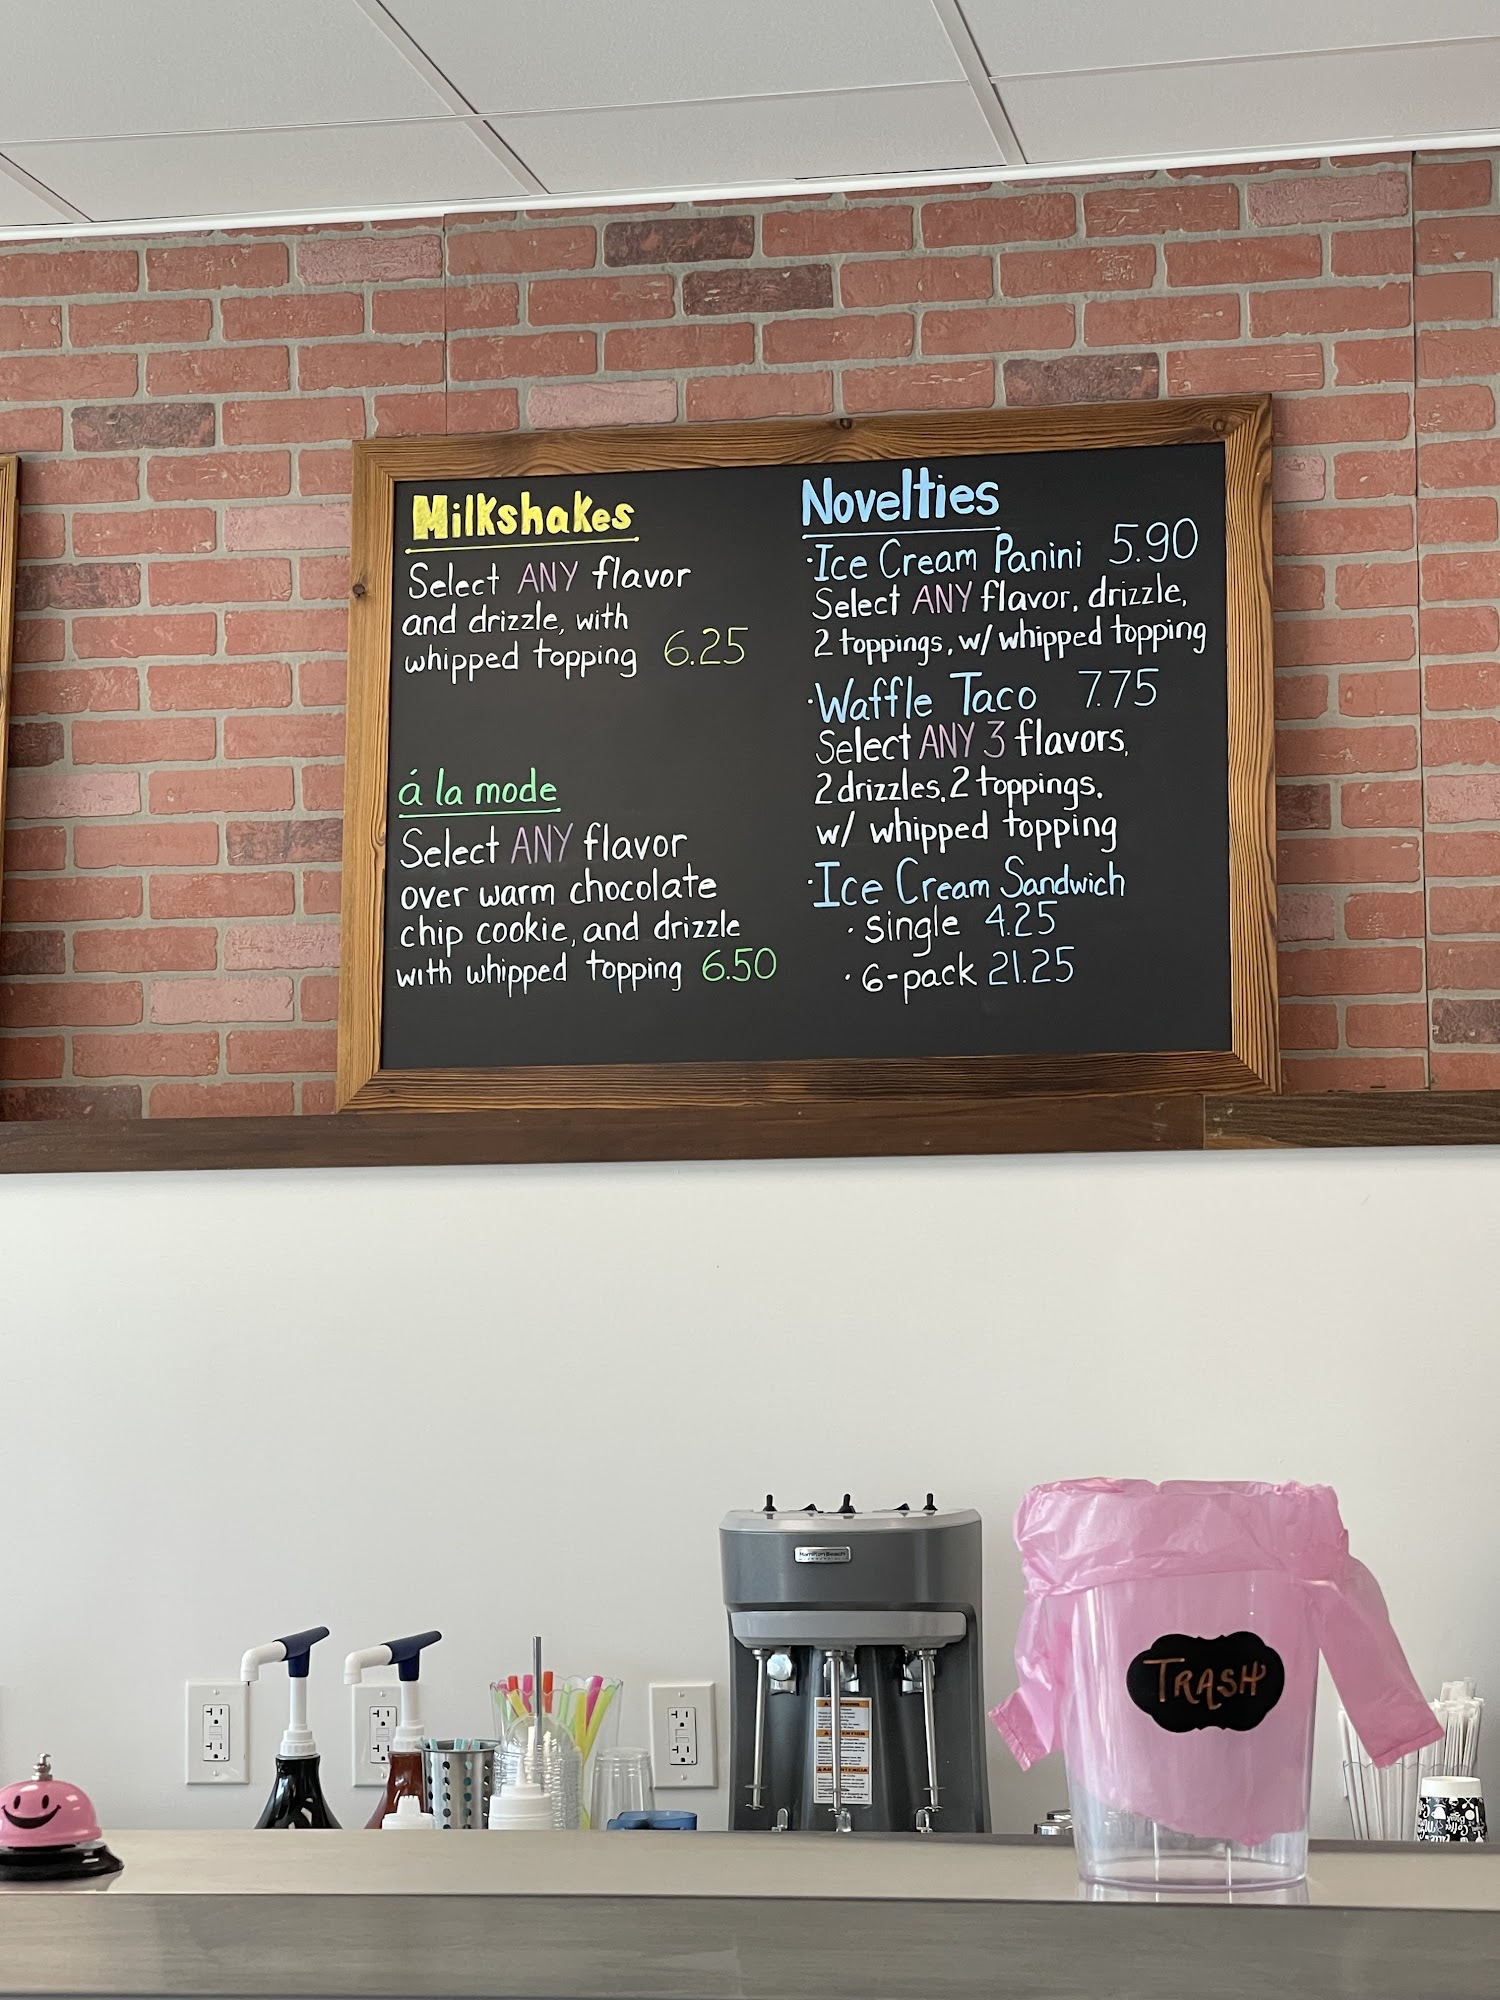 Milkshakes
Select ANY flavor
and drizzle, with
whipped topping 6.25
á la mode
Select ANY flavor
over warm chocolate
chip cookie, and drizzle
with whipped topping 6.50
Novelties
·Ice Cream Panini 5.90
Select ANY flavor, drizzle,
2 toppings, w/ whipped topping
·Waffle Taco 7.75
Select ANY 3 flavors,
2 drizzles, 2 toppings.
w/ whipped topping
·Ice Cream Sandwich
· single 4.25
· 6-pack 21.25
Hamilton Beach
TRASH